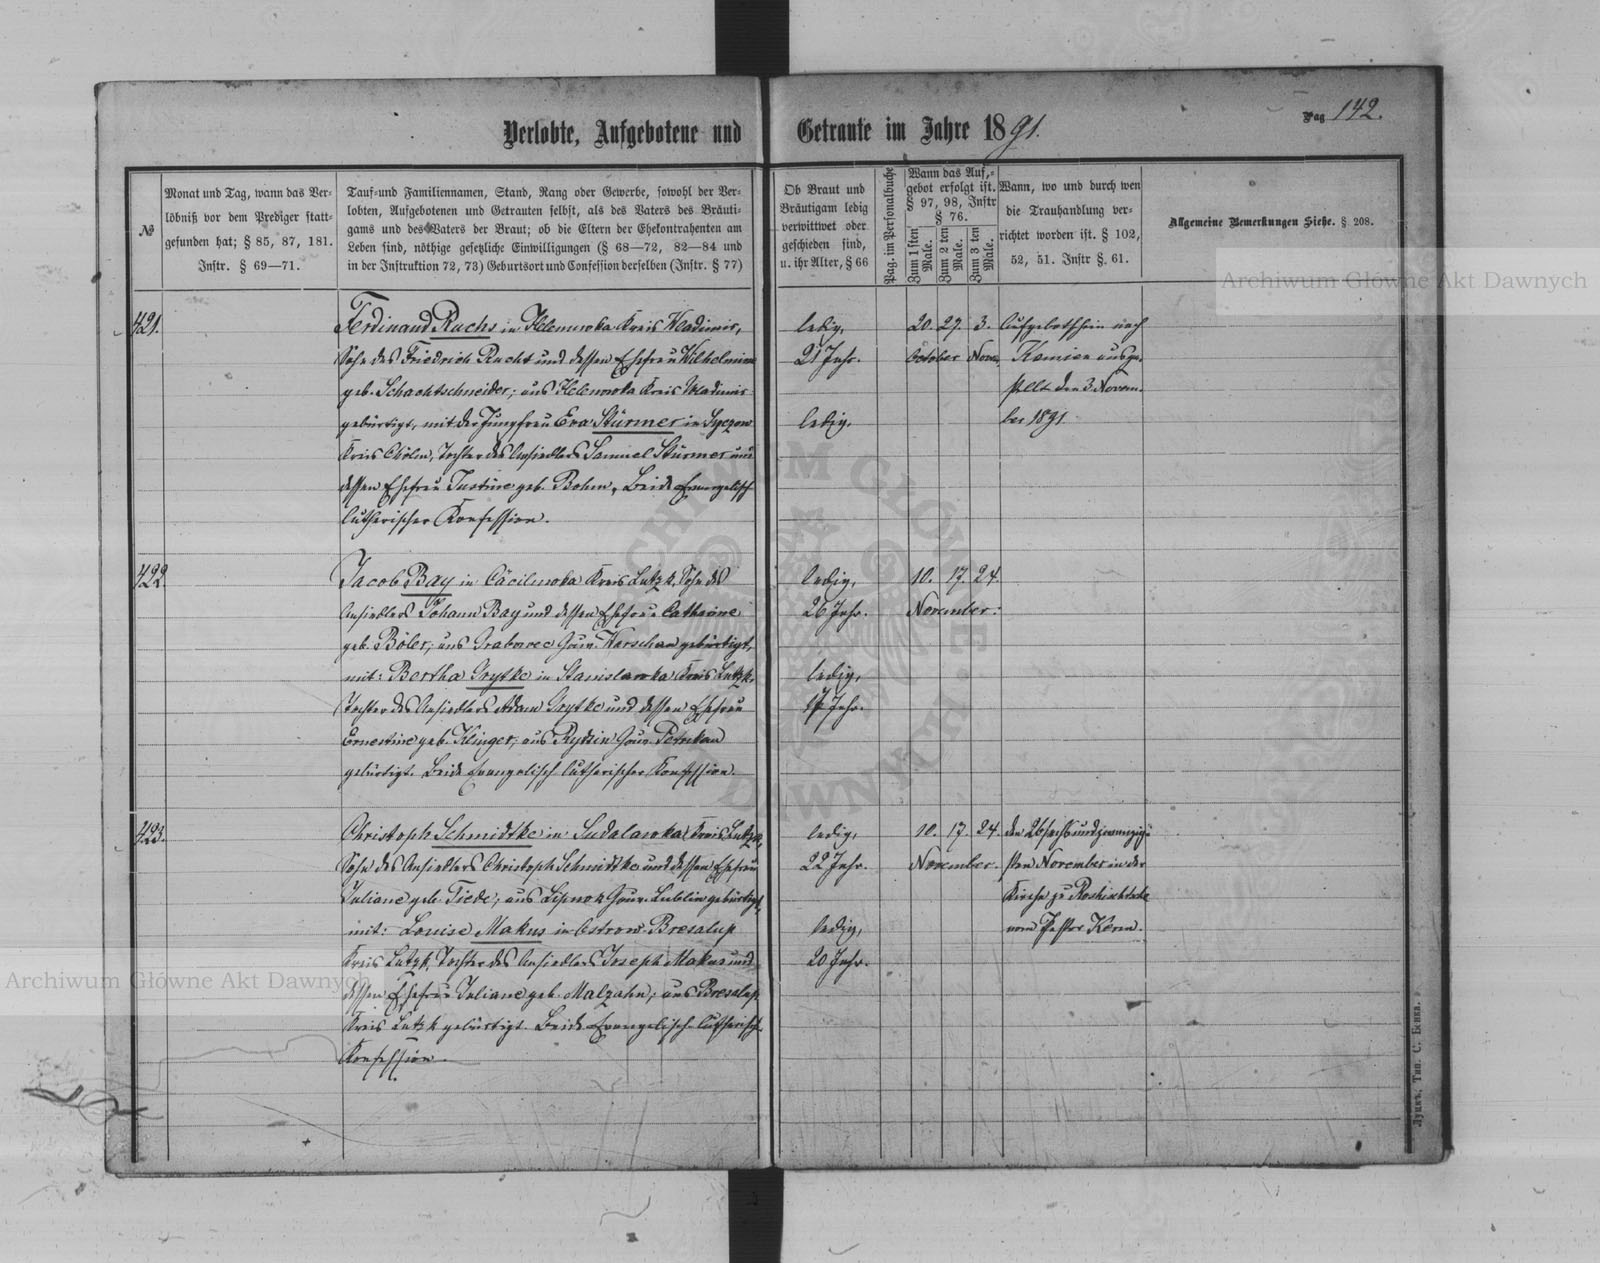 Verlobte, Aufgebotene und Getraute im Jahre 1891.
Pag 142.
№
Monat und Tag, wann das Ver-
löbniß vor dem Prediger statt-
gefunden hat; § 85, 87, 181.
Instr. § 69—71.
Tauf-und Familiennamen, Stand, Rang oder Gewerbe, sowohl der Ver-
lobten, Aufgebotenen und Getrauten selbst, als des Vaters des Bräuti-
gams und des Vaters der Braut; ob die Eltern der Ehekontrahenten am
Leben sind, nöthige gesetzliche Einwilligungen (§ 68—72, 82—84 und
in der Instruktion 72, 73) Geburtsort und Confession derselben (Instr. § 77)
Ob Braut und
Bräutigam ledig
verwittwet oder
geschieden sind,
u. ihr Alter, § 66
Pag. im Personalbuche
Wann das Auf-
gebot erfolgt ist.
§ 97, 98, Instr
§ 76.
Zum 1 sten Male.
Zum 2 ten Male.
Zum 3 ten Male.
Wann, wo und durch wen
die Trauhandlung ver-
richtet worden ist. § 102,
52, 51. Instr §. 61.
Allgemeine Bemerkungen Siehe. § 208.
421.
Ferdinand Ruchs in Helenowka Kreis Wladimir,
Sohn des Friedrich Rucht und dessen Ehefrau Wilhelmine
geb. Schachtschneider; aus Helenowka Kreis Wladimir
gebürtigt, mit der Jungfrau Eva Stürmer in Syczow
Kreis Cholm, Tochter des Ansiedlers Samuel Stürmer und
dessen Ehefrau Justine geb. Bohm, Beide Evangelisch
lutherischer Konfession.
ledig,
21 Jahr.
ledig,
20. 27. 3.
October Nov.
Aufgebotschein nach
Kamien ausge-
stellt den 3. Novem-
ber 1891.
422.
Jacob Bay in Cäcilowka Kreis Lutzk, Sohn des
Ansiedlers Johann Bay und dessen Ehefrau Catharine
geb. Böler; aus Grabowec Gouv. Warschau gebürtigt,
mit: Bertha Grytke in Stanislawka Kreis Lutzk,
Tochter des Ansiedlers Adam Grytke und dessen Ehefrau
Ernestine geb. Klinger, aus Rydzin Gouv. Petrikau
gebürtigt. Beide Evangelisch lutherischer Konfession.
ledig,
26 Jahr.
ledig,
Jahr.
10. 17. 24.
November.
423.
Christoph Schmidtke in Sudalawka Kreis Lutzk,
Sohn des Ansiedlers Christoph Schmidtke und dessen Ehefrau
Juliane geb. Tiede; aus Lipnok Gouv. Lublin gebürtigt,
mit: Louise Makus in Ostrow-Bresalup
Kreis Lutzk, Tochter des Ansiedlers Joseph Makus und
dessen Ehefrau Juliane geb. Malzahn; aus Bresalup
Kreis Lutzk gebürtigt. Beide Evangelisch-lutherisch.
Konfession.
ledig,
22 Jahr.
ledig,
20 Jahr.
10. 17. 24.
November.
den 26 sechsundzwanzig-
sten November in der
Kirche zu Roshischtsche
vom Pastor Kern.
Луцкъ, Тип. С. Бенка.
Archiwum Główne Akt Dawnych
Archiwum Główne Akt Dawnych